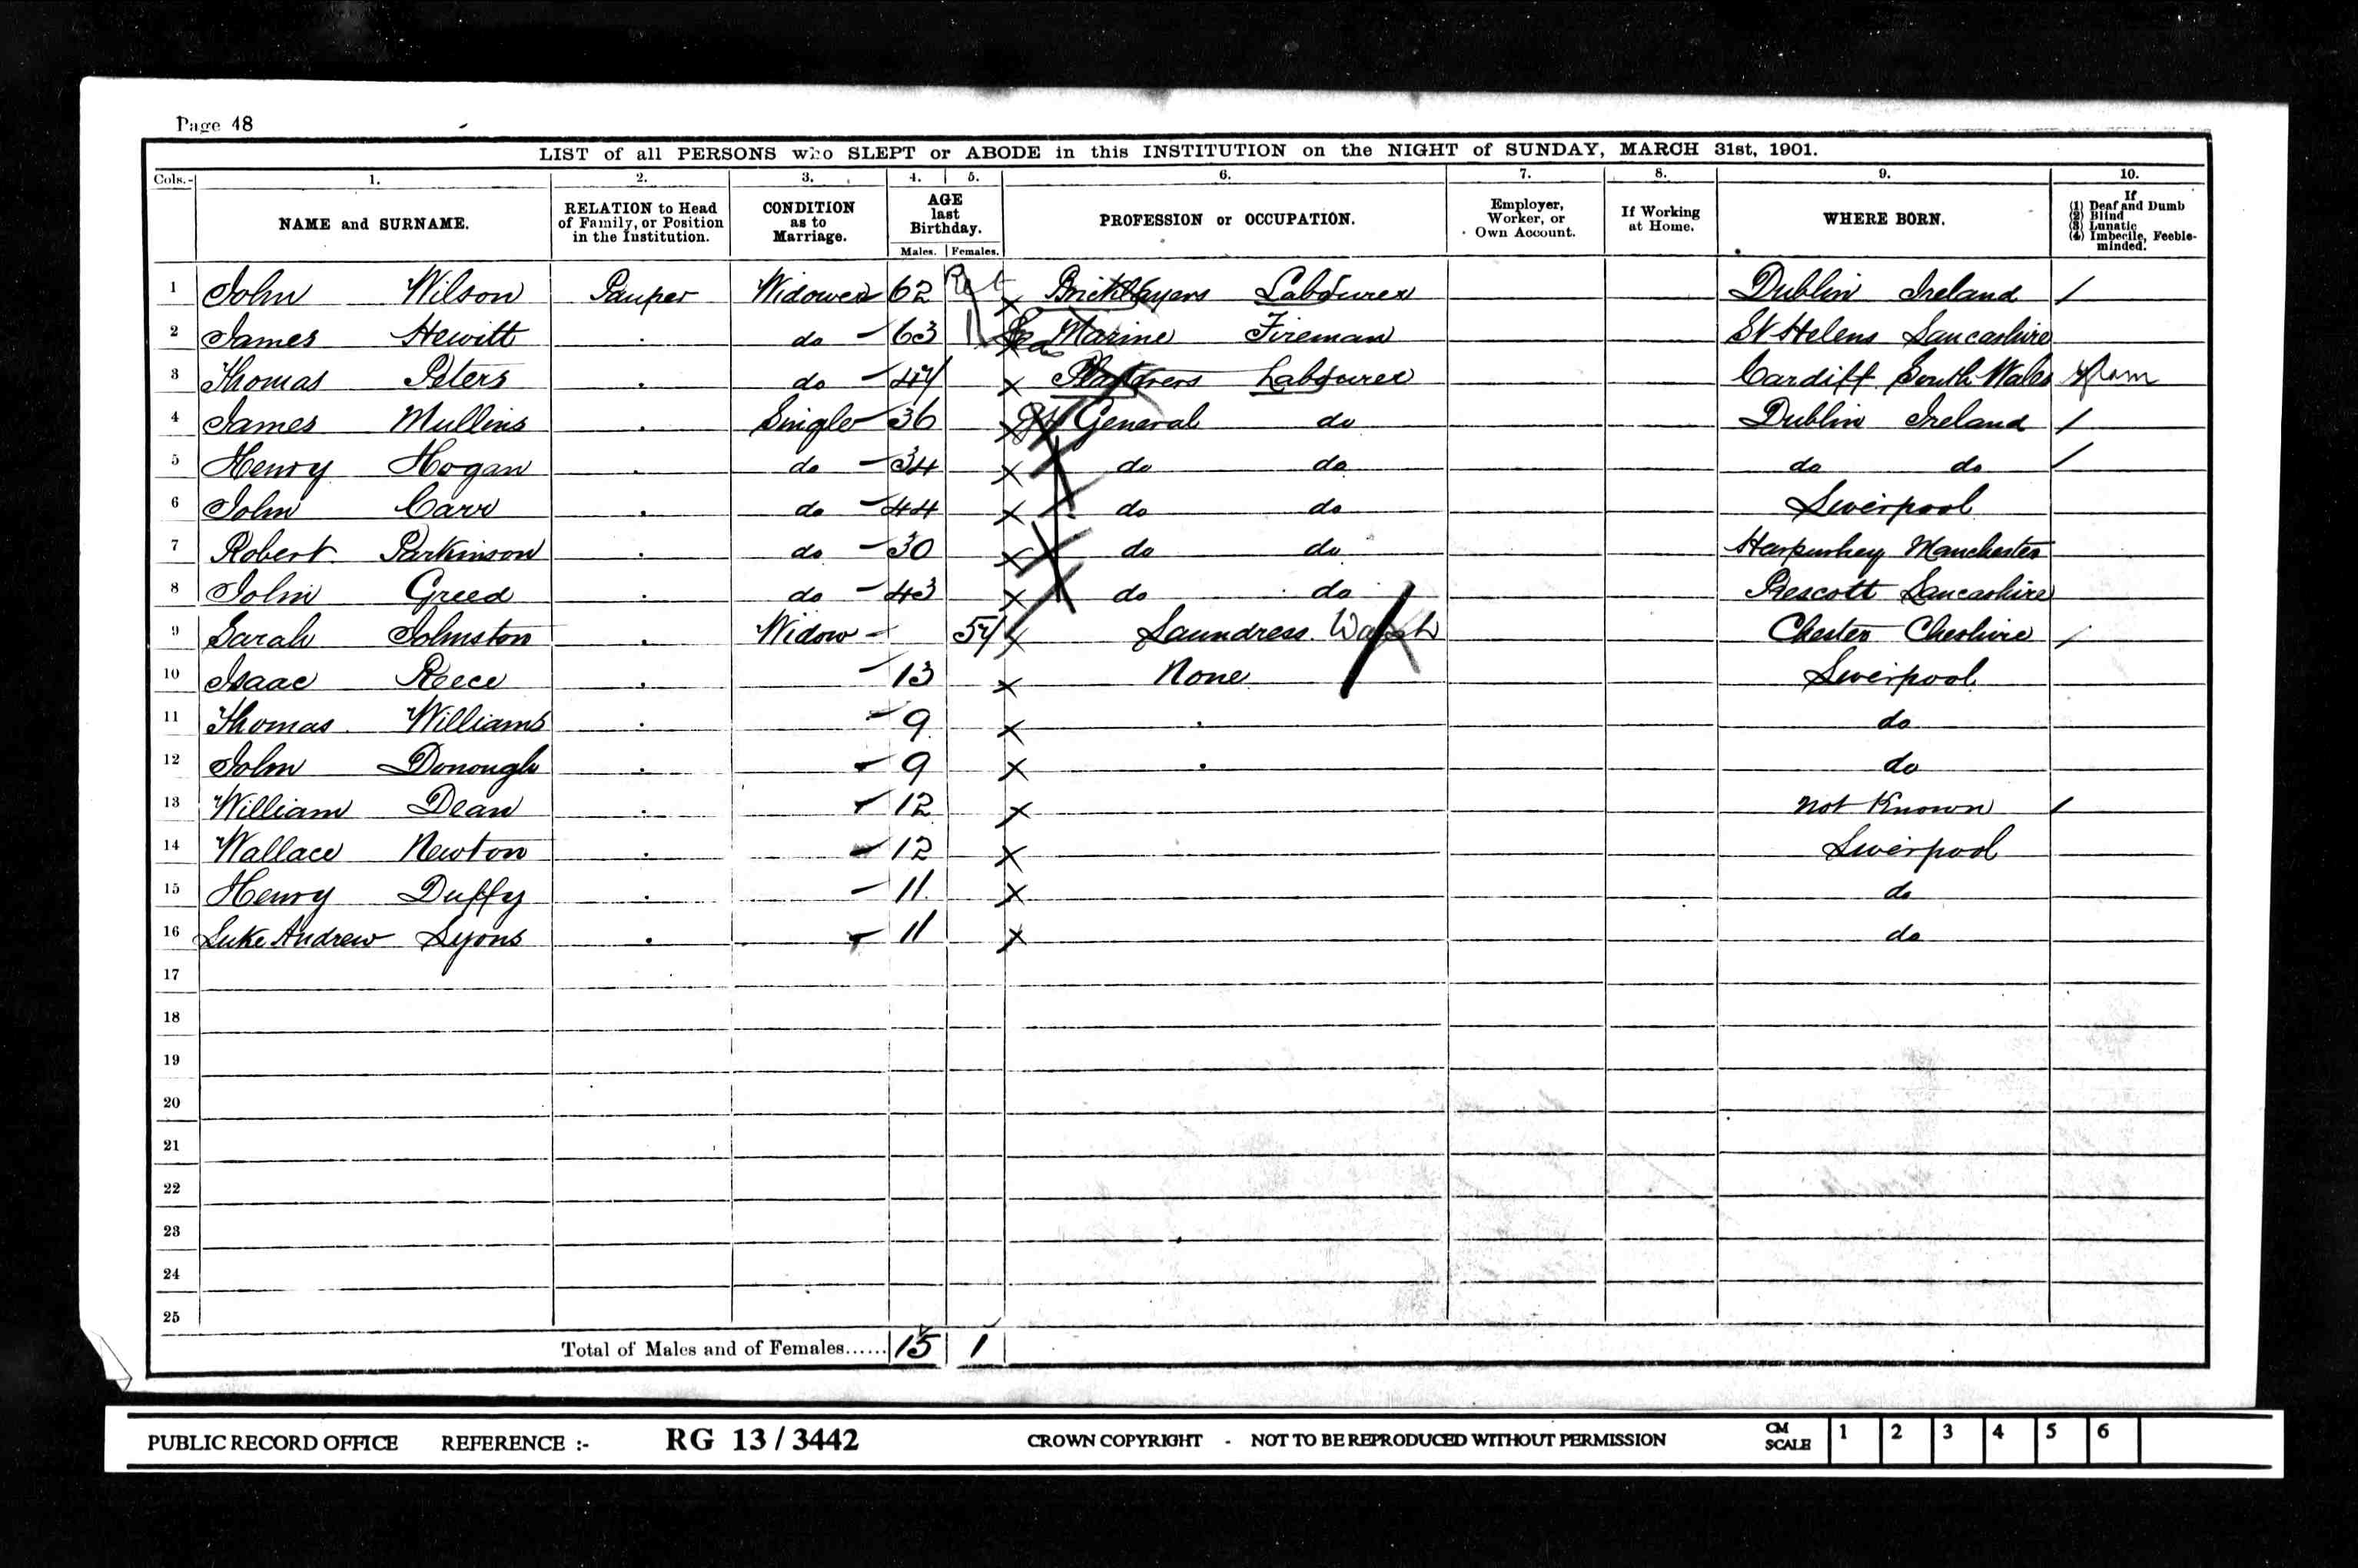 Page 48
LIST of all PERSONS who SLEPT or ABODE in this INSTITUTION on the NIGHT of SUNDAY, MARCH 31st, 1901.
Cols.- 1. 2. 3. 4. 5. 6. 7. 8. 9. 10.
NAME and SURNAME. RELATION to Head of Family, or Position in the Institution. CONDITION as to Marriage. AGE last Birthday. Males. Females. PROFESSION or OCCUPATION. Employer, Worker, or Own Account. If Working at Home. WHERE BORN. If (1) Deaf and Dumb (2) Blind (3) Lunatic (4) Imbecile, Feeble-minded.
1 John Wilson Pauper Widower 62 Bricklayers Labourer Dublin Ireland
2 James Hewitt do 63 Marine Fireman St Helens Lancashire
3 Thomas Peters do 47 Plasterers Labourer Cardiff South Wales
4 James Mullins Single 36 General do Dublin Ireland
5 Henry Hogan do 34 do do do do
6 John Carr do 44 do do Liverpool
7 Robert Parkinson do 30 do do Harpurhey Manchester
8 John Greed do 43 do do Prescott Lancashire
9 Sarah Johnston Widow 57 Laundress Wash Chester Cheshire
10 Isaac Reece 13 None Liverpool
11 Thomas Williams 9 do
12 John Donough 9 do
13 William Dean 12 not Known
14 Wallace Newton 12 Liverpool
15 Henry Duffy 11 do
16 Luke Andrew Lyons 11 do
17
18
19
20
21
22
23
24
25
Total of Males and of Females...... 15 1
PUBLIC RECORD OFFICE REFERENCE :- RG 13 / 3442 CROWN COPYRIGHT - NOT TO BE REPRODUCED WITHOUT PERMISSION CM SCALE 1 2 3 4 5 6